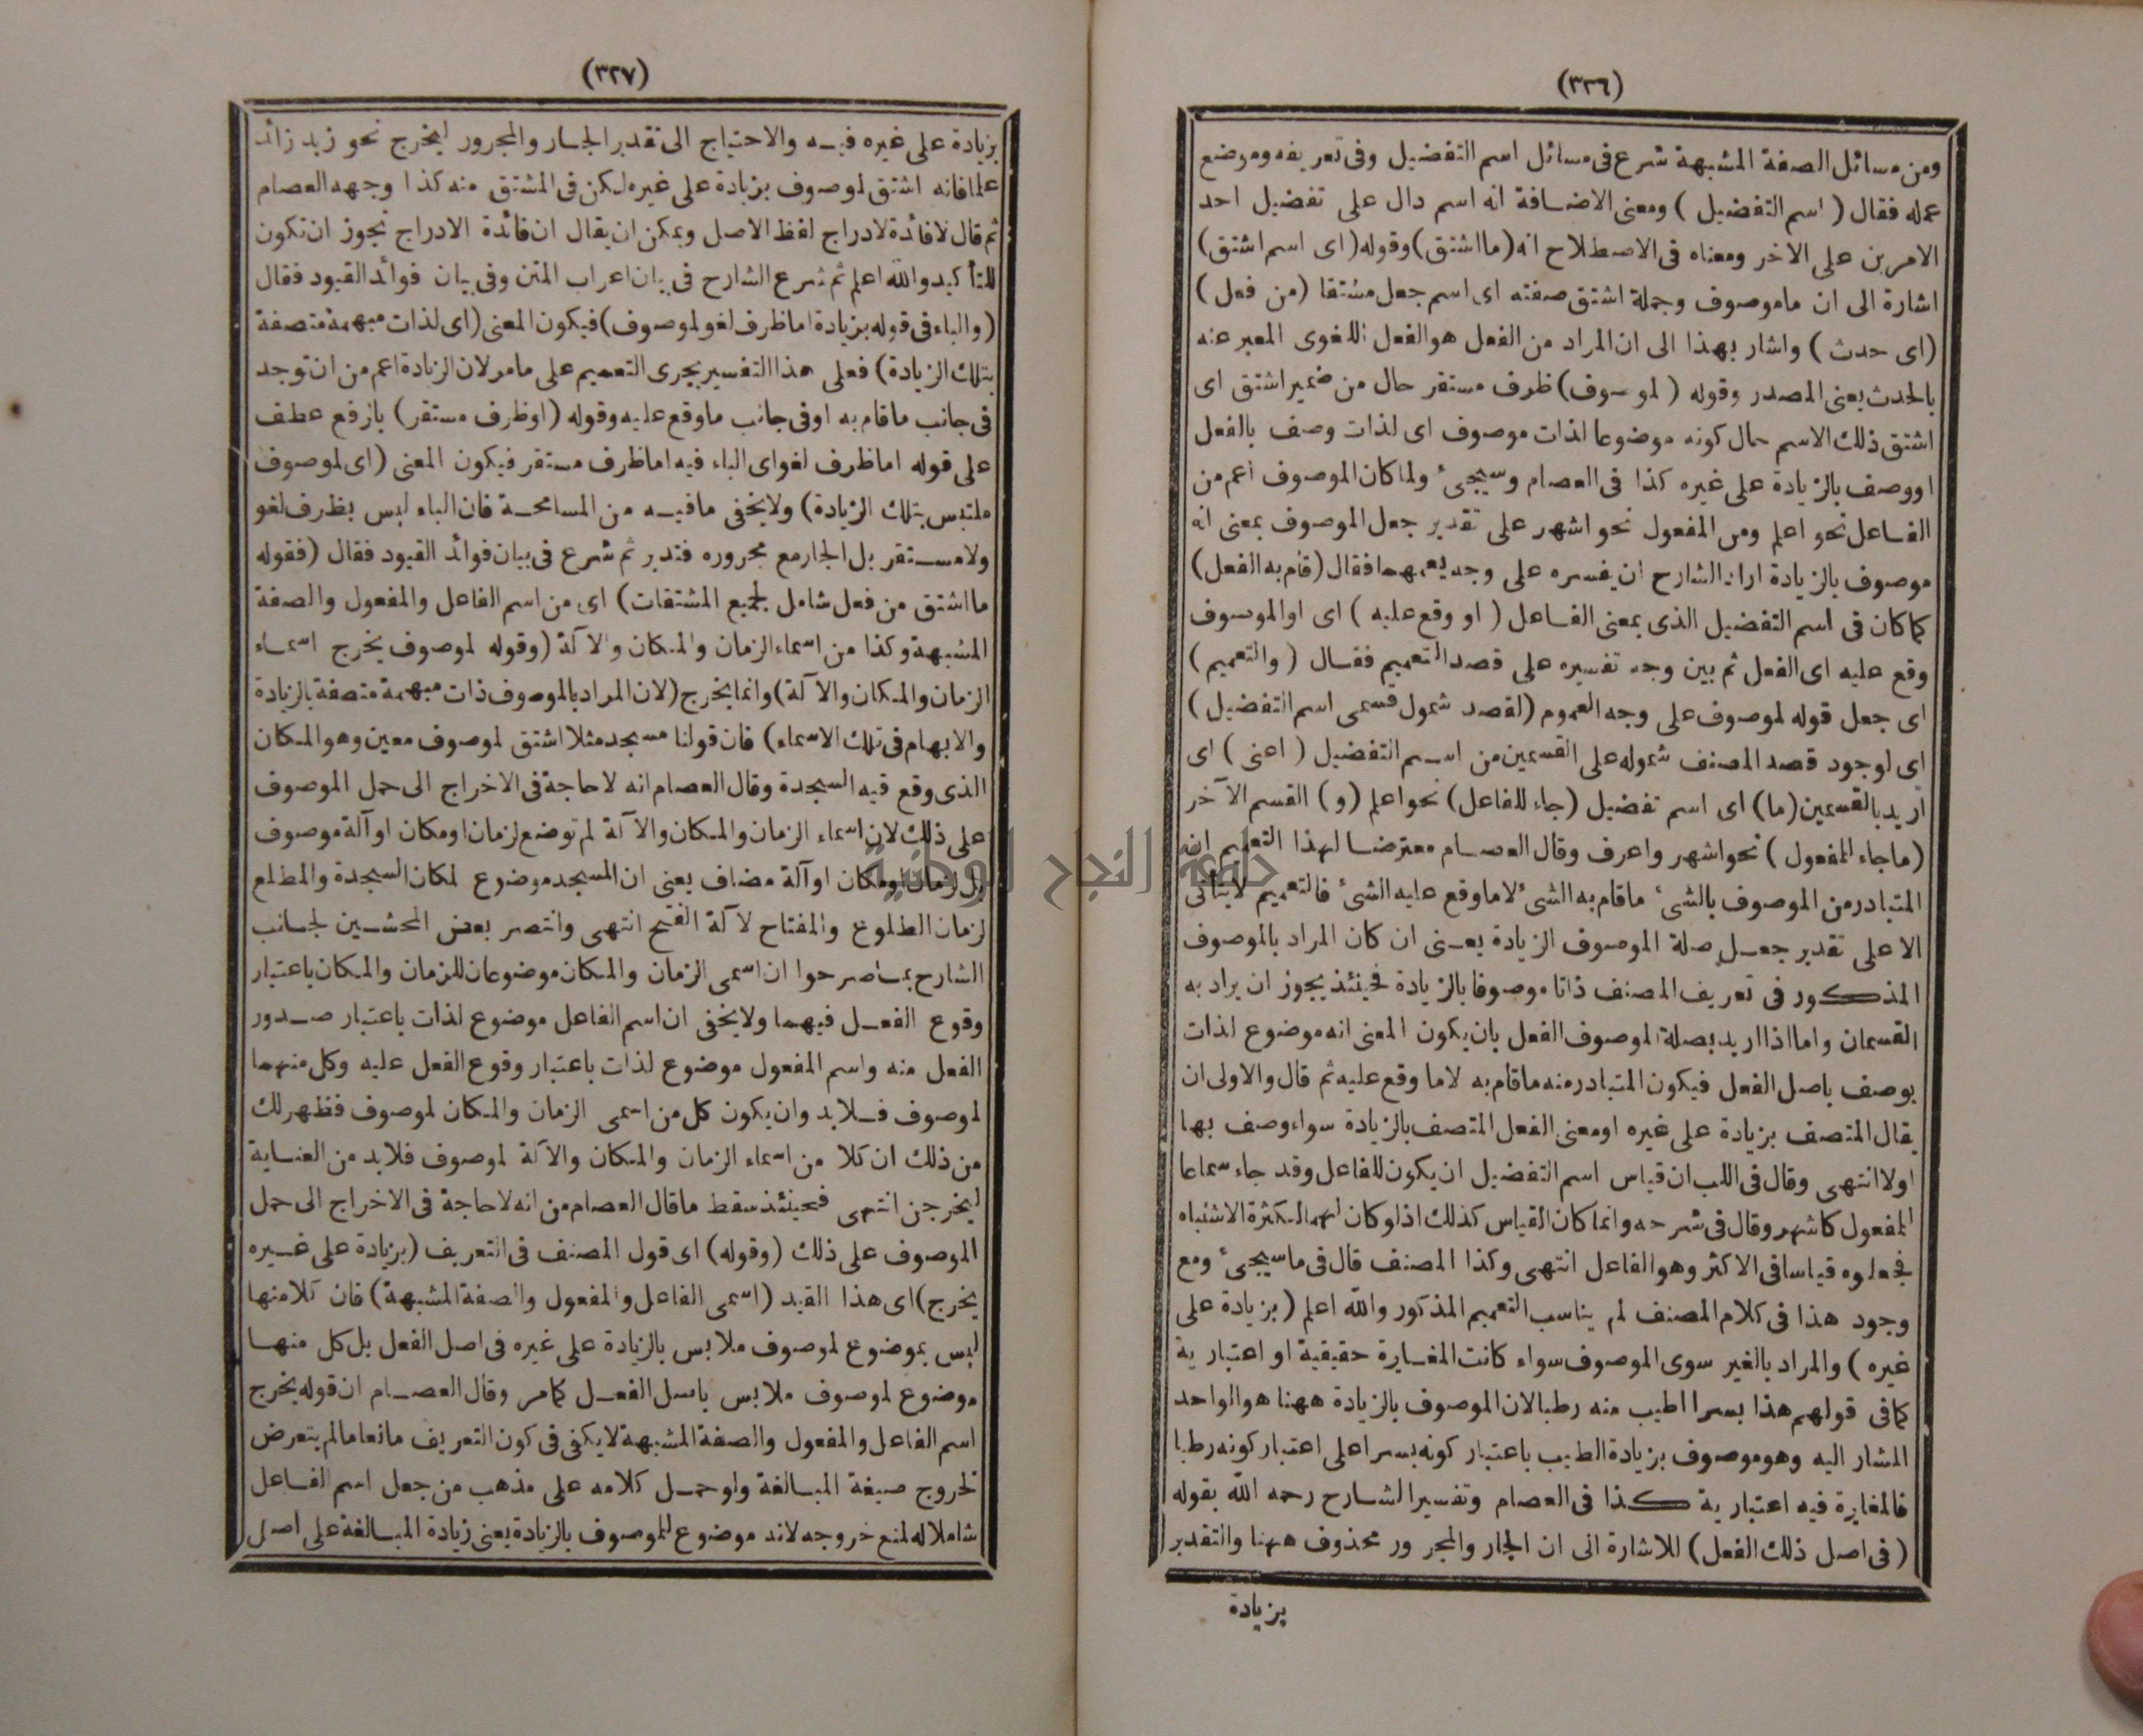 (٣٣٦)
ومن مسائل الصفة المشبهة شرع فى مسائل اسم التفضيل وفى تعريفه وموضع
عمله فقال ( اسم التفضيل ) ومعنى الاضافة انه اسم دال على تفضيل احد
الامرين على الاخر ومعناه فى الاصطلاح انه (ما اشتق) وقوله (اى اسم اشتق)
اشارة الى ان ما موصوف وجملة اشتق صفته اى اسم جعل مشتقا (من فعل )
(اى حدث ) واشار بهذا الى ان المراد من الفعل هو الفعل اللغوى المعبر عنه
بالحدث يعنى المصدر وقوله ( لموصوف) ظرف مستقر حال من ضمير اشتق اى
اشتق ذلك الاسم حال كونه موضوعا لذات موصوف اى لذات وصف بالفعل
او وصف بالزيادة على غيره كذا فى العصام وسيجىء ولما كان الموصوف اعم من
الفاعل نحو اعلم ومن المفعول نحو اشهر على تقدير جعل الموصوف بمعنى انه
موصوف بالزيادة اراد الشارح ان يفسره على وجه يعمهما فقال (قام به الفعل)
كما كان فى اسم التفضيل الذى بمعنى الفاعل ( او وقع عليه ) اى او الموصوف
وقع عليه اى الفعل ثم بين وجه تفسيره على قصد التعميم فقال ( والتعميم )
اى جعل قوله لموصوف على وجه العموم (لقصد شمول قسمى اسم التفضيل )
اى لوجود قصد المصنف شموله على القسمين من اسم التفضيل ( اعنى ) اى
اريد بالقسمين (ما) اى اسم تفضيل (جاء للفاعل) نحو اعلم (و) القسم الآخر
(ما جاء للمفعول ) نحو اشهر واعرف وقال العصام معترضا لهذا التعميم ان
المتبادر من الموصوف بالشىء ما قام به الشىء لا ما وقع عليه الشىء فالتعميم لا يتأتى
الا على تقدير جعل صلة الموصوف الزيادة يعنى ان كان المراد بالموصوف
المذكور فى تعريف المصنف ذاتا موصوفا بالزيادة فحينئذ يجوز ان يراد به
القسمان واما اذا اريد بصلة الموصوف الفعل بان يكون المعنى انه موضوع لذات
يوصف باصل الفعل فيكون المتبادر منه ما قام به لا ما وقع عليه ثم قال والاولى ان
يقال المتصف بزيادة على غيره او معنى الفعل المتصف بالزيادة سواء وصف بها
اولا انتهى وقال فى اللب ان قياس اسم التفضيل ان يكون للفاعل وقد جاء سماعا
للمفعول كاشهر وقال فى شرحه وانما كان القياس كذلك اذ لو كان لهما لكثرة الاشتباه
فجعلوه قياسا فى الاكثر وهو الفاعل انتهى وكذا المصنف قال فى ما سيجىء ومع
وجود هذا فى كلام المصنف لم يناسب التعميم المذكور والله اعلم (بزيادة على
غيره ) والمراد بالغير سوى الموصوف سواء كانت المغايرة حقيقية او اعتبارية
كما فى قولهم هذا بسرا اطيب منه رطبا لان الموصوف بالزيادة ههنا هو الواحد
المشار اليه وهو موصوف بزيادة الطيب باعتبار كونه بسرا على اعتبار كونه رطبا
فالمغايرة فيه اعتبارية كذا فى العصام وتفسير الشارح رحمه الله بقوله
(فى اصل ذلك الفعل) للاشارة الى ان الجار والمجرور محذوف ههنا والتقدير
بزيادة
(٣٢٧)
بزيادة على غيره فيه والاحتياج الى تقدير الجار والمجرور ليخرج نحو زيد زائد
علما فانه اشتق لموصوف بزيادة على غيره لكن فى المشتق منه كذا وجهه العصام
ثم قال لا فائدة لادراج لفظ الاصل ويمكن ان يقال ان فائدة الادراج تجوز ان تكون
للتأكيد والله اعلم ثم شرع الشارح فى بيان اعراب المتن وفى بيان فوائد القيود فقال
(والباء فى قوله بزيادة اما ظرف لغو لموصوف) فيكون المعنى (اى لذات مبهمة متصفة
بتلك الزيادة) فعلى هذا التفسير يجرى التعميم على ما مر لان الزيادة اعم من ان توجد
فى جانب ما قام به او فى جانب ما وقع عليه وقوله (او ظرف مستقر) بالرفع عطف
على قوله اما ظرف لغو اى الباء فيه اما ظرف مستقر فيكون المعنى (اى لموصوف
ملتبس بتلك الزيادة) ولا يخفى ما فيه من المسامحة فان الباء ليس بظرف لغو
ولا مستقر بل الجار مع مجروره فتدبر ثم شرع فى بيان فوائد القيود فقال (فقوله
ما اشتق من فعل شامل لجميع المشتقات) اى من اسم الفاعل والمفعول والصفة
المشبهة وكذا من اسماء الزمان والمكان والآلة (وقوله لموصوف يخرج اسماء
الزمان والمكان والآلة) وانما يخرج (لان المراد بالموصوف ذات مبهمة متصفة بالزيادة
والابهام فى تلك الاسماء) فان قولنا مسجد مثلا اشتق لموصوف معين وهو المكان
الذى وقع فيه السجدة وقال العصام انه لا حاجة فى الاخراج الى حمل الموصوف
على ذلك لان اسماء الزمان والمكان والآلة لم توضع لزمان او مكان او آلة موصوف
بل لزمان او مكان او آلة مضاف يعنى ان المسجد موضوع لمكان السجدة والمطلع
لزمان الطلوع والمفتاح لآلة الفتح انتهى وانتصر بعض المحشين لجانب
الشارح بما صرحوا ان اسمى الزمان والمكان موضوعان للزمان والمكان باعتبار
وقوع الفعل فيهما ولا يخفى ان اسم الفاعل موضوع لذات باعتبار صدور
الفعل منه واسم المفعول موضوع لذات باعتبار وقوع الفعل عليه وكل منهما
لموصوف فلا بد وان يكون كل من اسمى الزمان والمكان لموصوف فظهر لك
من ذلك ان كلا من اسماء الزمان والمكان والآلة لموصوف فلا بد من العناية
ليخرجن انتهى فحينئذ سقط ما قال العصام من انه لا حاجة فى الاخراج الى حمل
الموصوف على ذلك (وقوله) اى قول المصنف فى التعريف (بزيادة على غيره
يخرج) اى هذا القيد (اسمى الفاعل والمفعول والصفة المشبهة) فان كلا منها
ليس بموضوع لموصوف ملابس بالزيادة على غيره فى اصل الفعل بل كل منها
موضوع لموصوف ملابس باصل الفعل كما مر وقال العصام ان قوله يخرج
اسم الفاعل والمفعول والصفة المشبهة لا يكفى فى كون التعريف مانعا ما لم يتعرض
لخروج صيغة المبالغة ولو حمل كلامه على مذهب من جعل اسم الفاعل
شاملا له لمنع خروجه لانه موضوع للموصوف بالزيادة يعنى زيادة المبالغة على اصل
جامعة النجاح الوطنية